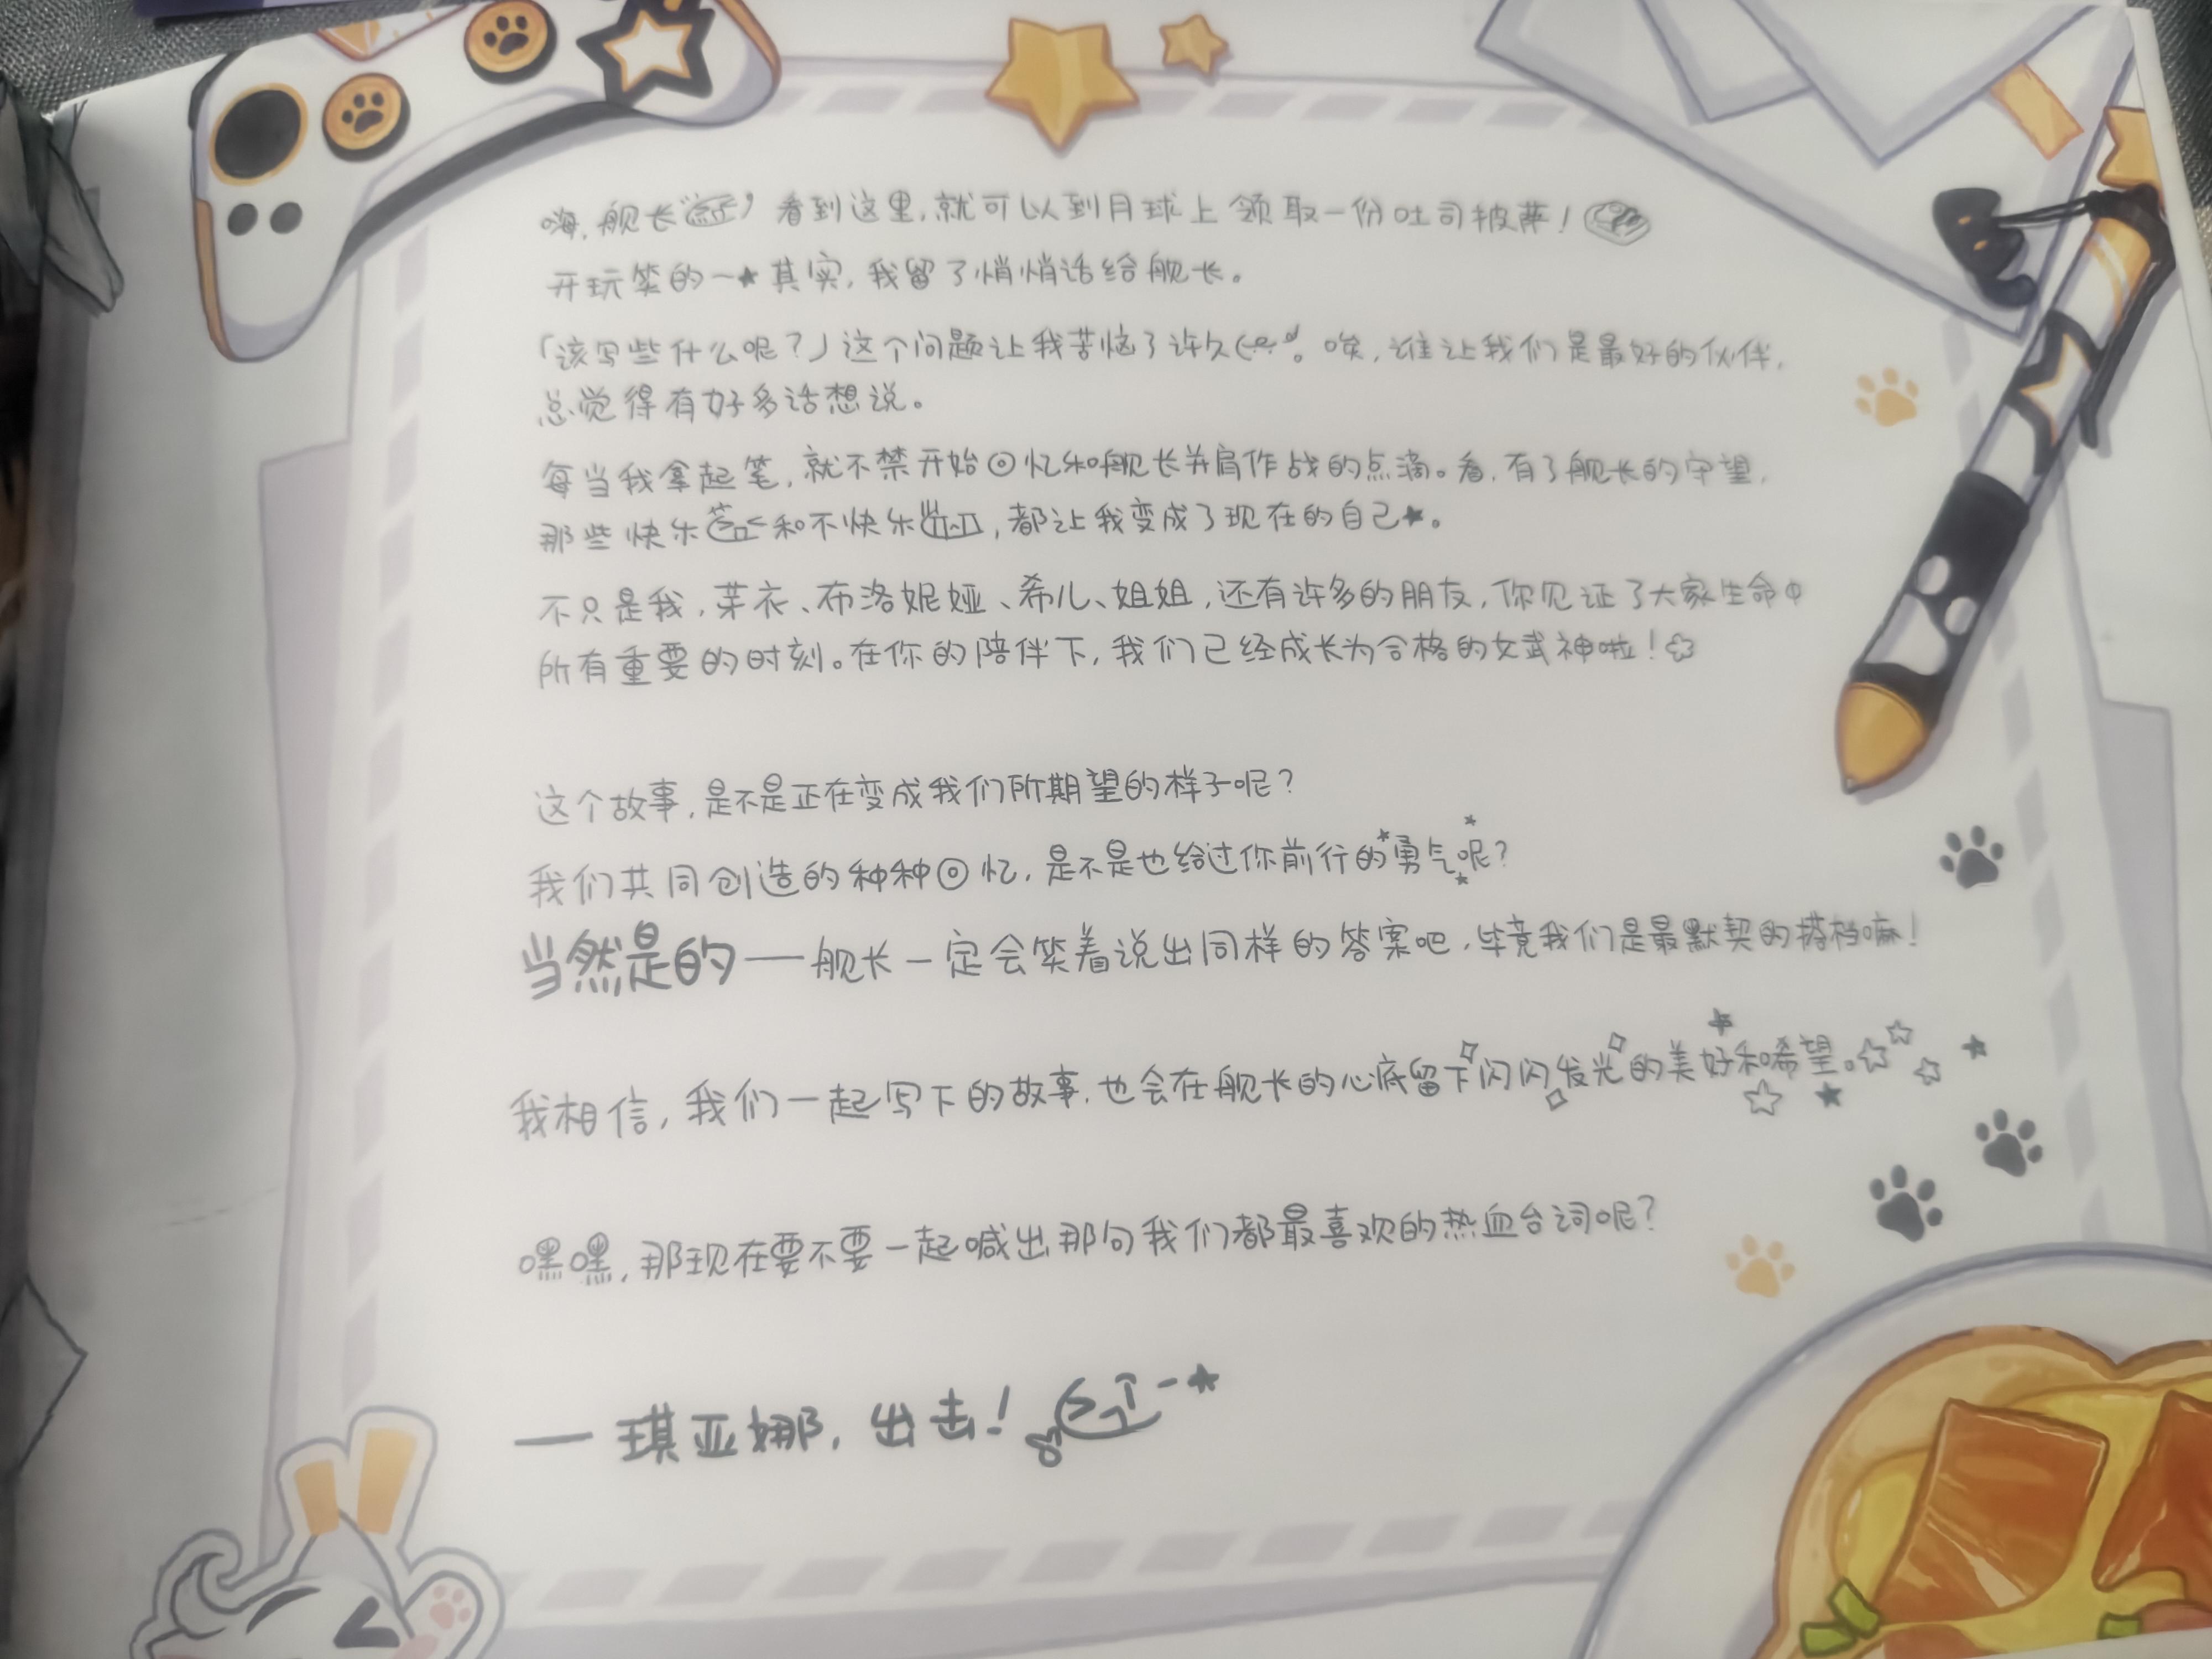 嗨，舰长 看到这里，就可以到月球上领取一份吐司披萨！
开玩笑的—★其实，我留了悄悄话给舰长。
「该写些什么呢？」这个问题让我苦恼了许久。唉，谁让我们是最好的伙伴，
总觉得有好多话想说。
每当我拿起笔，就不禁开始回忆和舰长并肩作战的点滴。看，有了舰长的守望，
那些快乐和不快乐，都让我变成了现在的自己★。
不只是我，芽衣、布洛妮娅、希儿、姐姐，还有许多的朋友，你见证了大家生命中
所有重要的时刻。在你的陪伴下，我们已经成长为合格的女武神啦！
这个故事，是不是正在变成我们所期望的样子呢？
我们共同创造的种种回忆，是不是也给过你前行的勇气呢？
当然是的——舰长一定会笑着说出同样的答案吧，毕竟我们是最默契的搭档嘛！
我相信，我们一起写下的故事，也会在舰长的心底留下闪闪发光的美好和希望。
嘿嘿，那现在要不要一起喊出那句我们都最喜欢的热血台词呢？
—琪亚娜，出击！